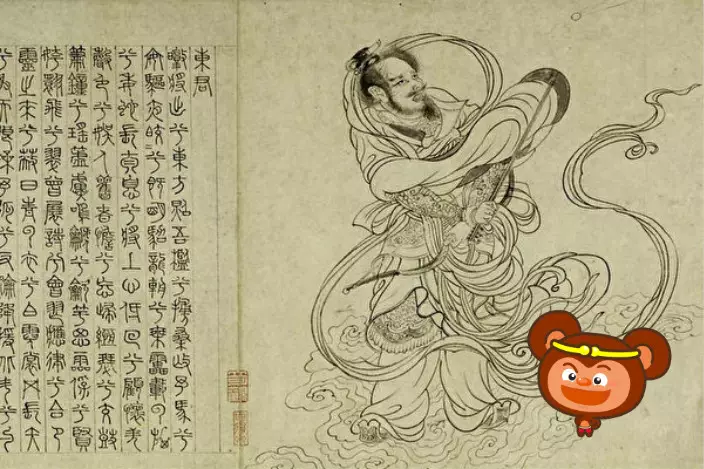 東君
暾將出兮東方照吾檻兮扶桑撫予馬兮
安驅夜皎兮既明駕龍輈兮乘雷載雲旗
兮委蛇長太息兮將上心低佪兮顧懷羌
聲色兮娛人觀者憺兮忘歸緪瑟兮交鼓
簫鐘兮瑤簴鳴兮吹竽思靈保兮賢
姱翾飛兮翠曾展詩兮會舞應律兮合節
靈之來兮蔽日青雲衣兮白霓裳舉長矢